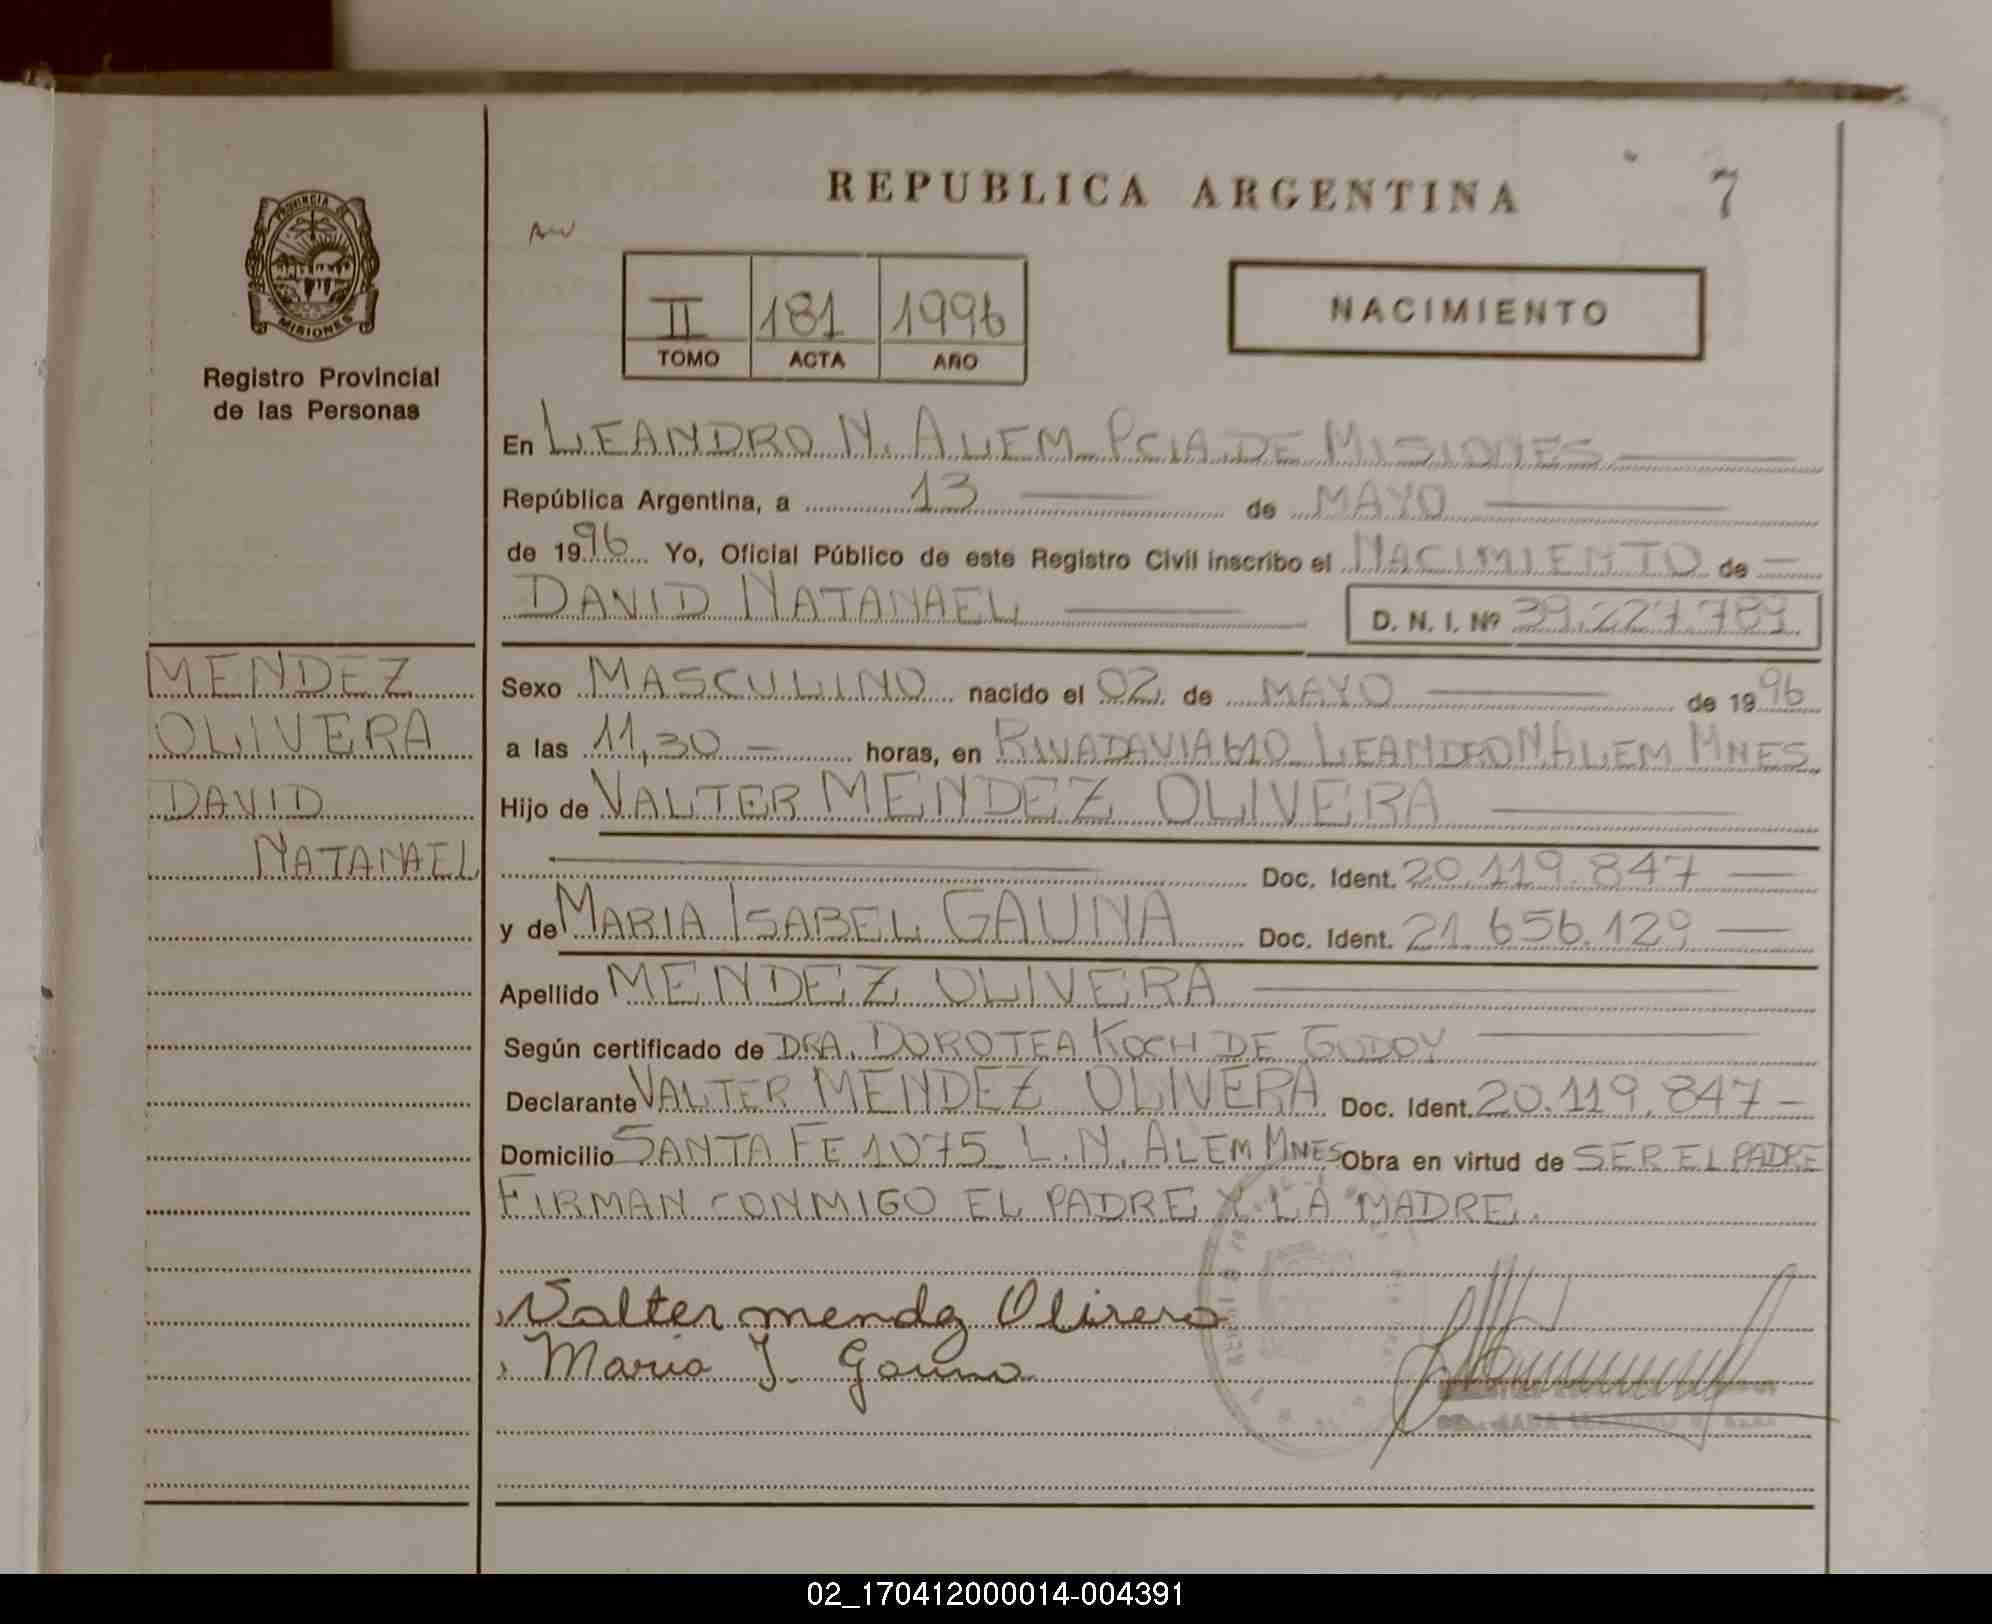 REPUBLICA ARGENTINA
7
PROVINCIA DE
MISIONES
Registro Provincial
de las Personas
II 181 1996
TOMO ACTA AÑO
NACIMIENTO
En LEANDRO N. ALEM PCIA DE MISIONES
República Argentina, a 13 de MAYO
de 1996 Yo, Oficial Público de este Registro Civil inscribo el NACIMIENTO de
DAVID NATANAEL D. N. I. Nº 39.227.789
MENDEZ
OLIVERA
DAVID
NATANAEL
Sexo MASCULINO nacido el 02 de MAYO de 1996
a las 11,30 horas, en RIVADAVIA 610 LEANDRO N ALEM MNES
Hijo de VALTER MENDEZ OLIVERA
Doc. Ident. 20.119.847
y de MARIA ISABEL GAUNA Doc. Ident. 21.656.129
Apellido MENDEZ OLIVERA
Según certificado de DRA. DOROTEA KOCH DE GODOY
Declarante VALTER MENDEZ OLIVERA Doc. Ident. 20.119.847
Domicilio SANTA FE 1075 L.N. ALEM MNES Obra en virtud de SER EL PADRE
FIRMAN CONMIGO EL PADRE Y LA MADRE.
Valter mendez Olivera
Maria I. Gauna
02_170412000014-004391